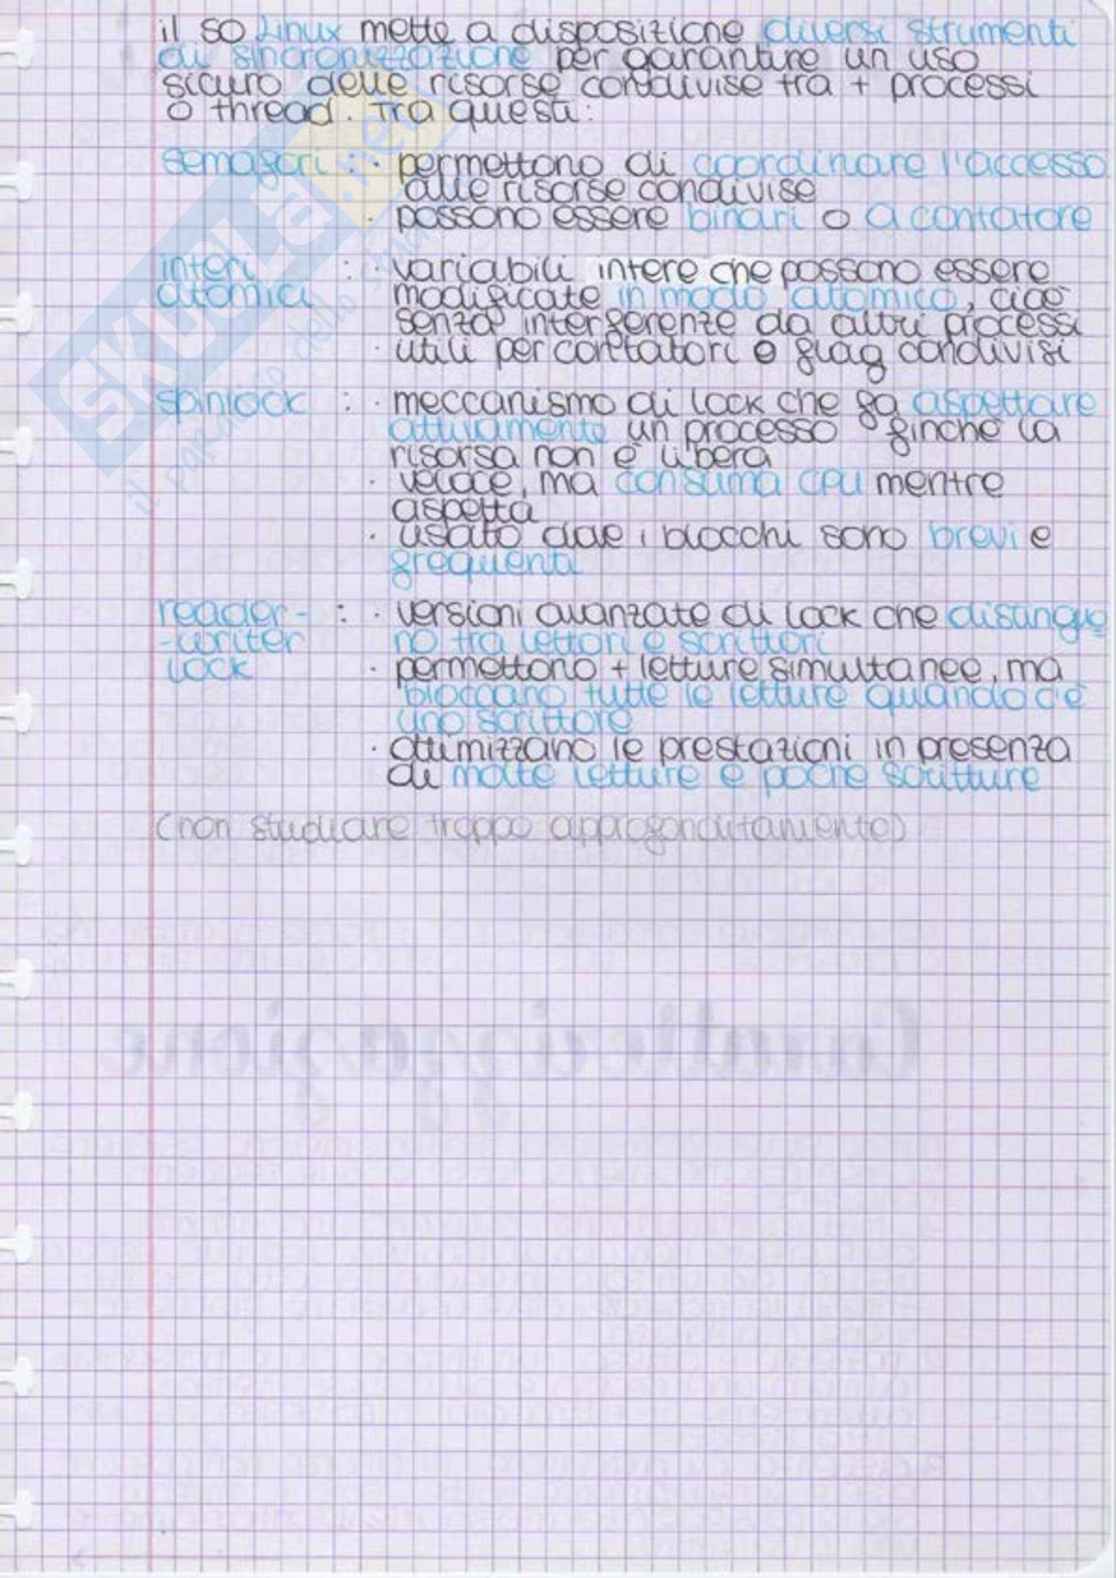 il SO Linux mette a disposizione diversi strumenti
di sincronizzazione per garantire un uso
sicuro delle risorse condivise tra + processi
o thread. Tra questi:
semafori : · permettono di coordinare l'accesso
alle risorse condivise
· possono essere binari o a contatore
interi : · variabili intere che possono essere
atomici modificate in modo atomico, cioè
senza interferenze da altri processi
· utili per contatori e flag condivisi
spinlock : · meccanismo di lock che fa aspettare
attivamente un processo finché la
risorsa non è libera
· veloce, ma consuma CPU mentre
aspetta
· usato dove i blocchi sono brevi e
frequenti
reader- : · versioni avanzate di lock che distinguo
-writer no tra lettori e scrittori
lock · permettono + letture simultanee, ma
bloccano tutte le letture quando c'è
uno scrittore
· ottimizzano le prestazioni in presenza
di molte letture e poche scritture
(non studiare troppo approfonditamente)
SKUOLA.net